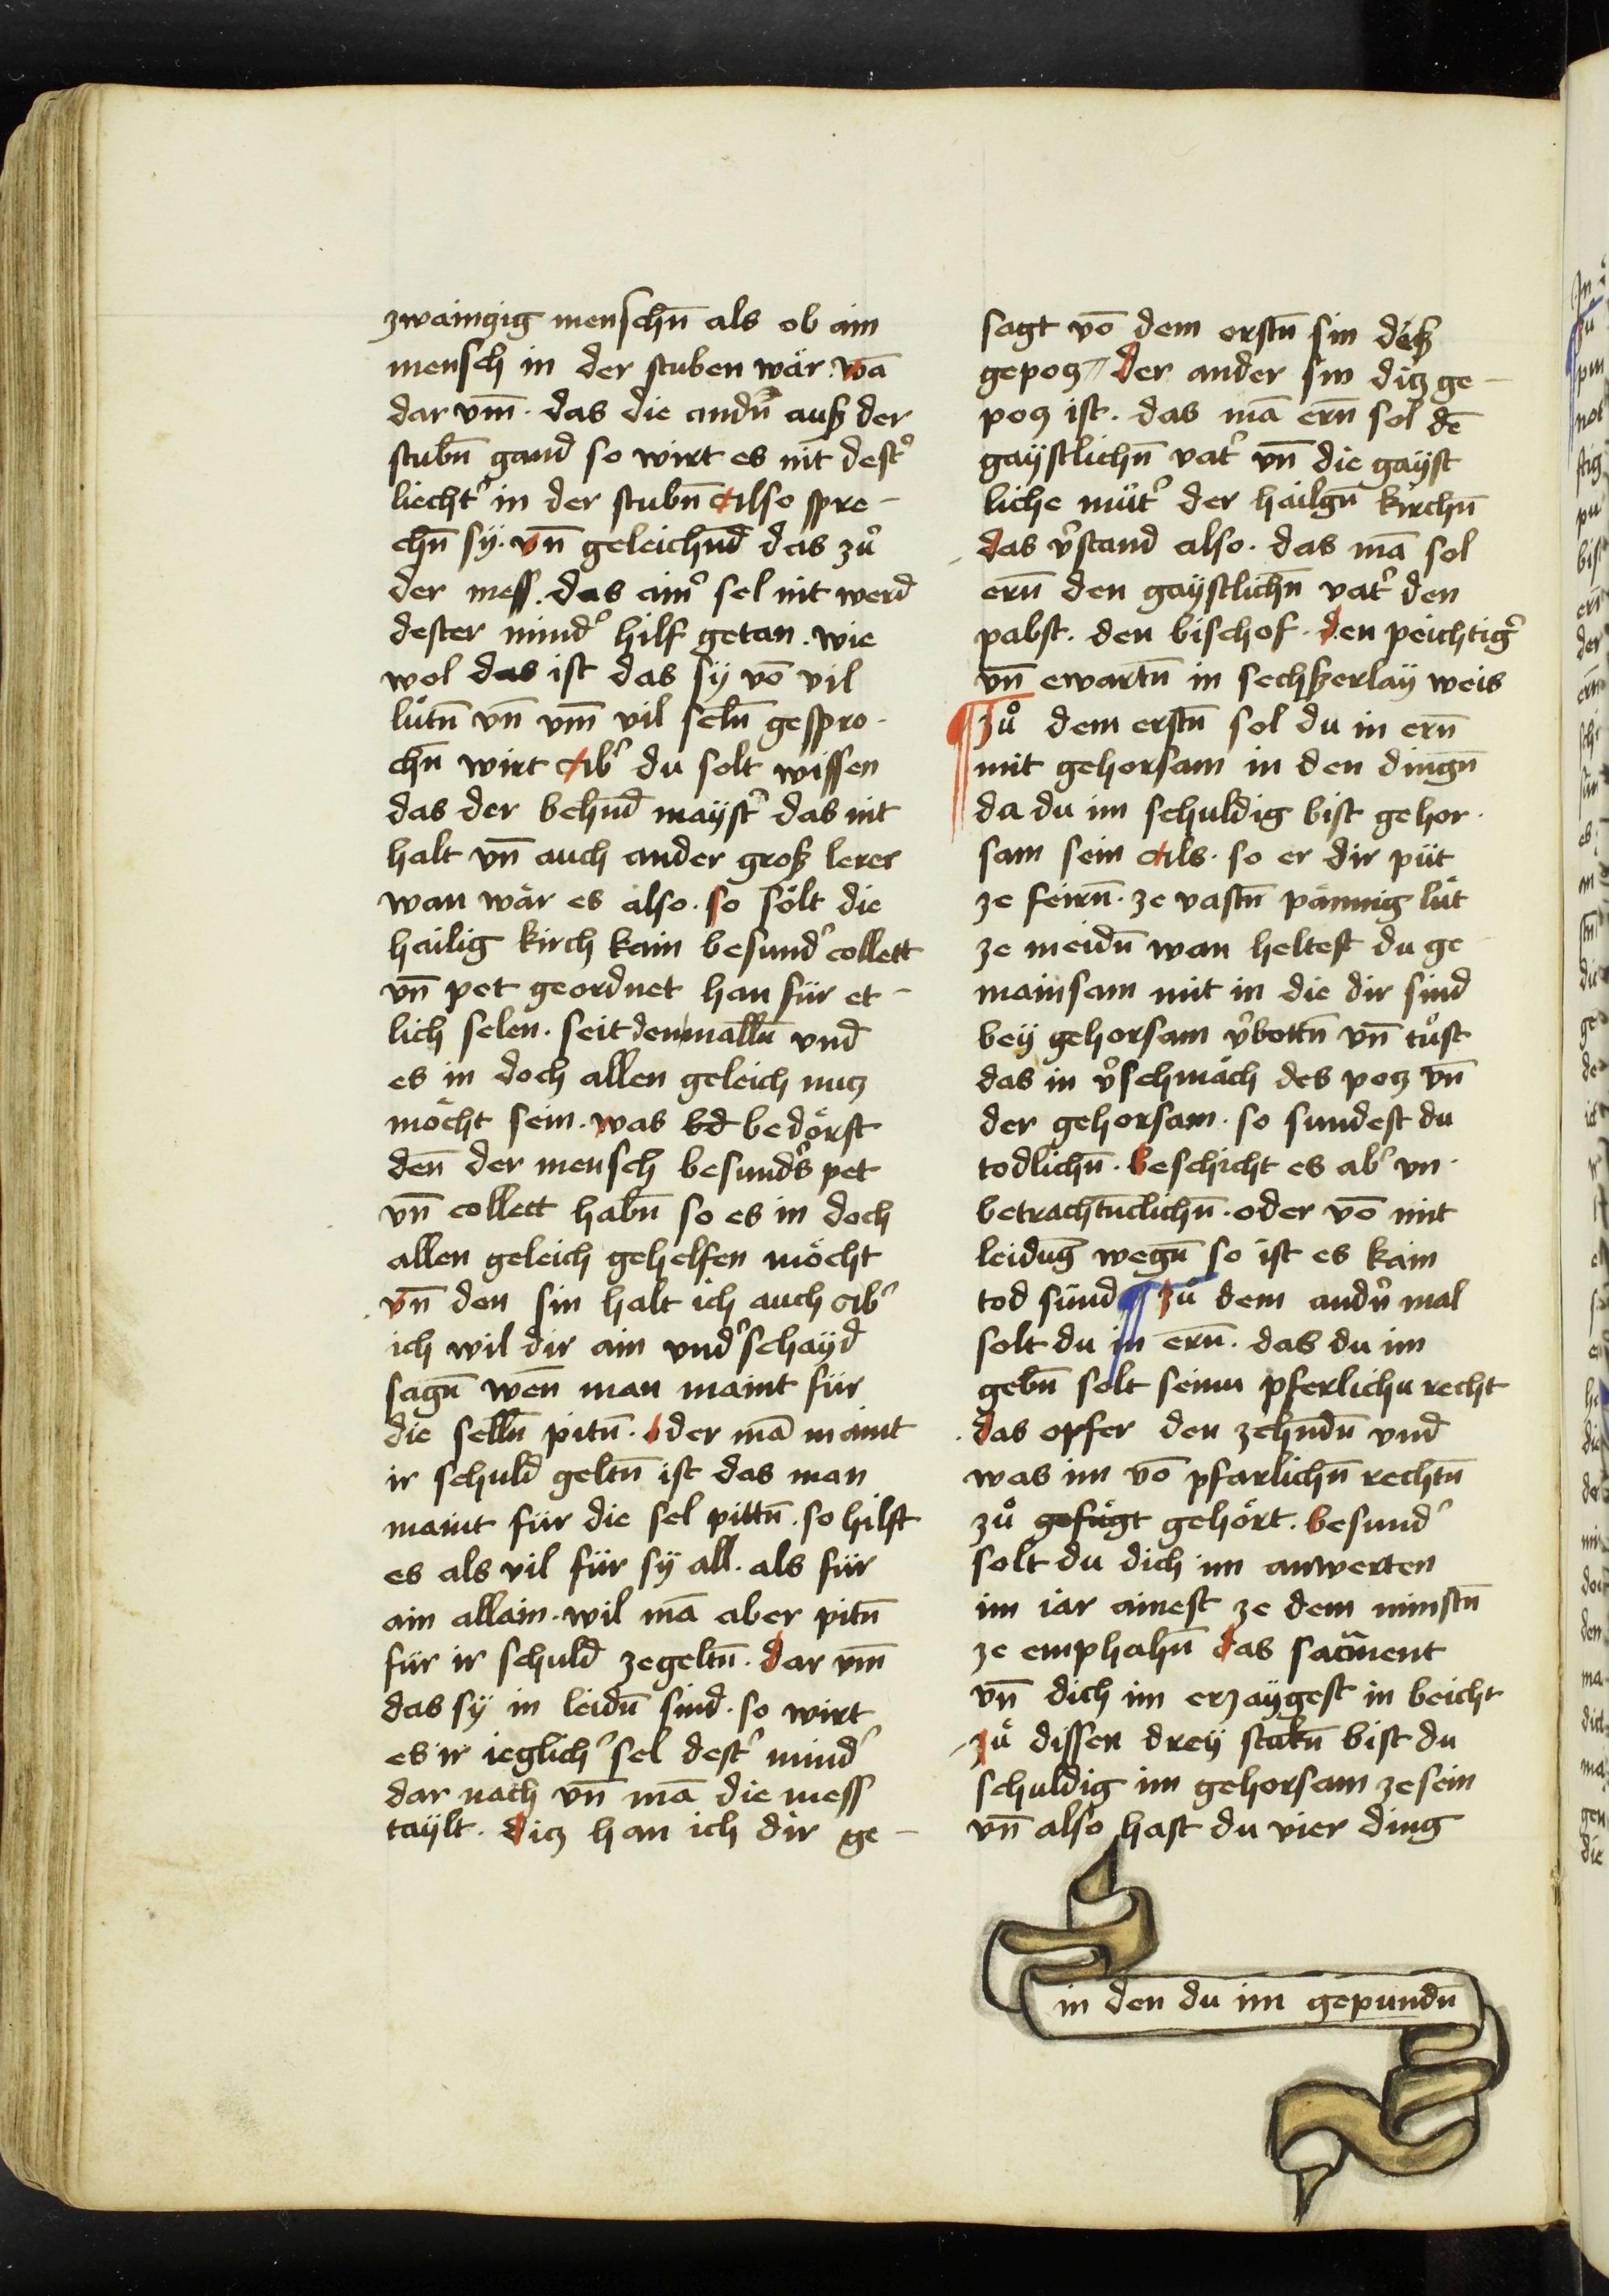 zwaingig menschn̄ als ob ain
mensch in der stuben wär. wā
dar vm̄. das die andn̄ auß der
stubn̄ gand so wirt es nit destˀ
liechtˀ in der stubn̄ Also spre-
chn̄ sy. vn̄ geleichnd̄ das zů
der mess. das aimˀ sel nit werd
dester mindˀ hilf getan. wie
wol das ist das sÿ vō vil
lütn̄ vn̄ vm̄ vil seln̄ gespro-
chn̄ wirt Abˀ du solt wissen
das der behnd̄ maÿstˀ das nit
halt vn̄ auch ander groß lerer
wan wär es also. so sölt die
hailig kirch kain besundˀ collett
vn̄ pet geordnet han für et-
lich selen. seit denmalln̄ vnd
es in doch allen geleich nutz
möcht sein. was bd bedörft
den̄ der mensch besundˀs pet
vn̄ collect habn̄ so es in doch
allen geleich gehelfen möcht
vn̄ den sin halt ich auch Abˀ
ich wil dir ain vndˀschayd
sagn̄ wen̄ man maint für
die selln̄ pitn̄. oder mā maint
ir schuld geltn̄ ist das man
maint für die sel pittn̄. so hilft
es als vil für sÿ all. als für
ain allain. wil mā aber pitn̄
für ir schuld zegeltn̄. dar vm̄
das sÿ in leidn̄ sind. so wirt
es ir ieglichˀ sel destˀ mindˀ
dar nach vn̄ mā die mess
taÿlt. ditz han ich dir ge-
sagt vō dem erstn̄ sin deß
gepotz der ander sin ditz ge-
potz ist. das mā ern̄ sol dē
gaÿstlichn̄ vatˀ vn̄ die gaÿst
liche mütˀ der hailgn̄ kirchn̄
das vˀstand also. das mā sol
ern̄ den gaÿstlichn̄ vatˀ den
pabst. den bischof. den peichtigˀ
vn̄ ewartn̄ in sechßerlaÿ weis
¶ zů dem erstn̄ sol du in ern̄
mit gehorsam in den dingn̄
da du im schuldig bist gehor-
sam sein Als. so er dir püt
ze feirn̄. ze vastn̄ pännig lüt
ze meidn̄ wan heltest du ge
mainsam mit in die dir sind
beÿ gehorsam vˀbottn̄ vn̄ tůst
das in vˀschmäch des potz vn̄
der gehorsam. so sundest du
todlichn̄. beschicht es abˀ vn-
betrachtnclichn̄. oder vō mit
leidūg wegn̄ so ist es kain
tod sünd ¶ zů dem andˀn mal
solt du in ern̄. das du im
gebn̄ solt seinn pferlichn recht
das opfer den zehndn̄ vnd
was im vō pfarlichn̄ rechtn̄
zů gefügt gehört. besundˀ
solt du dich im anwerten
im iar ainest ze dem minstn̄
ze emphahn̄ das sacment
vn̄ dich im erzaÿgest in beicht
zů dissen dreÿ stukn̄ bist du
schuldig im gehorsam zesein
vn̄ also hast du vier ding
in den du im gepundn̄